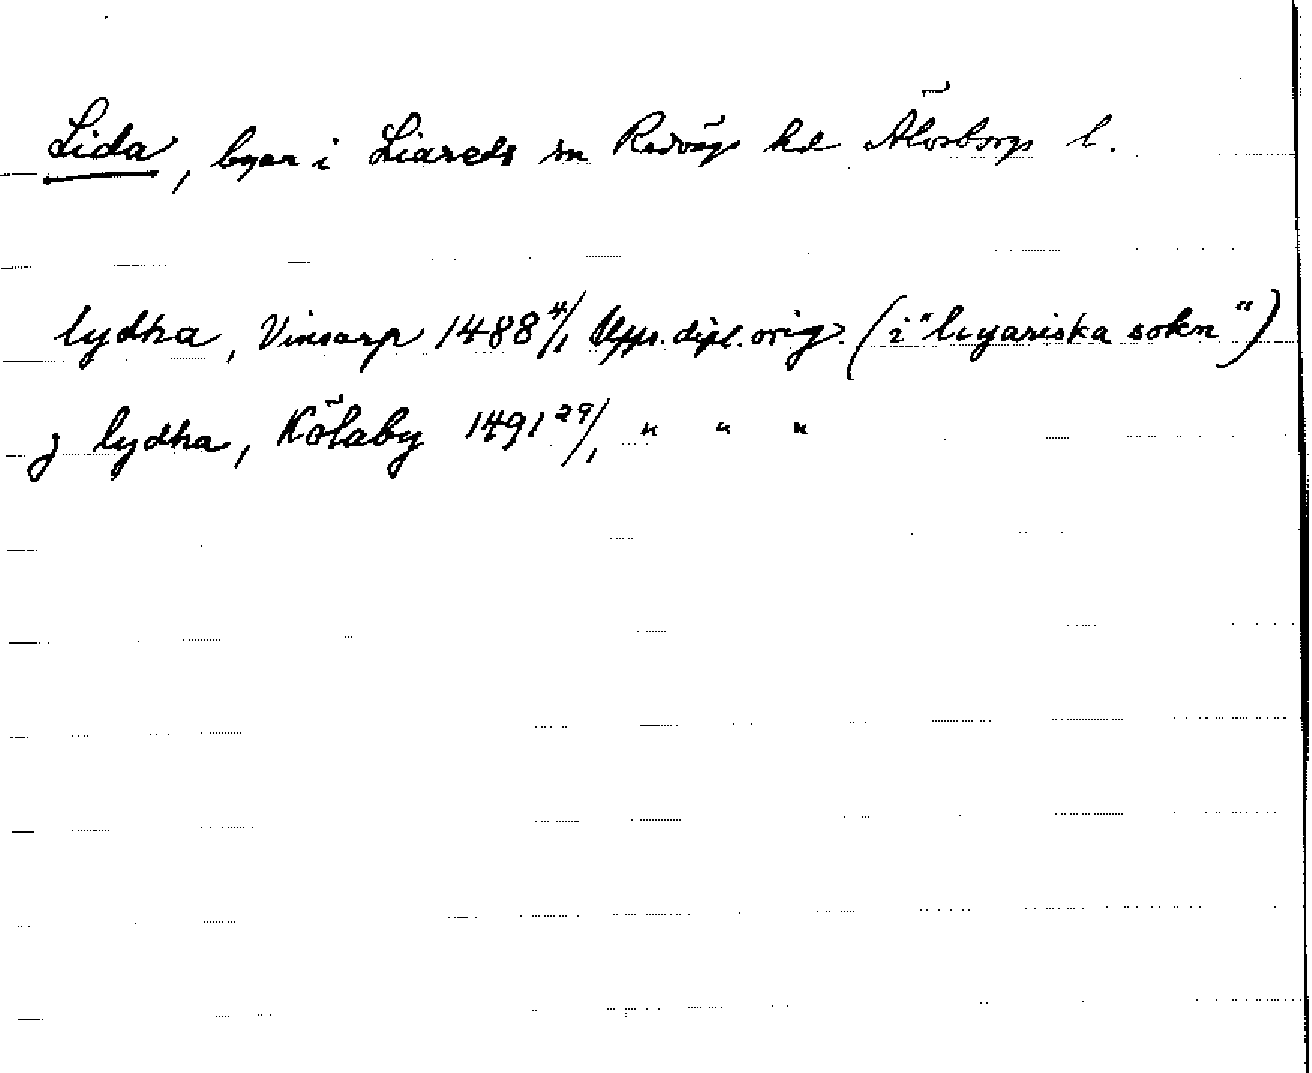 Lida, byar i Liareds sn Redvägs hd Älvsborgs l.
lydha, Vinsarp 1488 4/1 Upps. dipl. orig. (i "liyariska sokn")
j lydha, Kölaby 1491 29/1 " " "